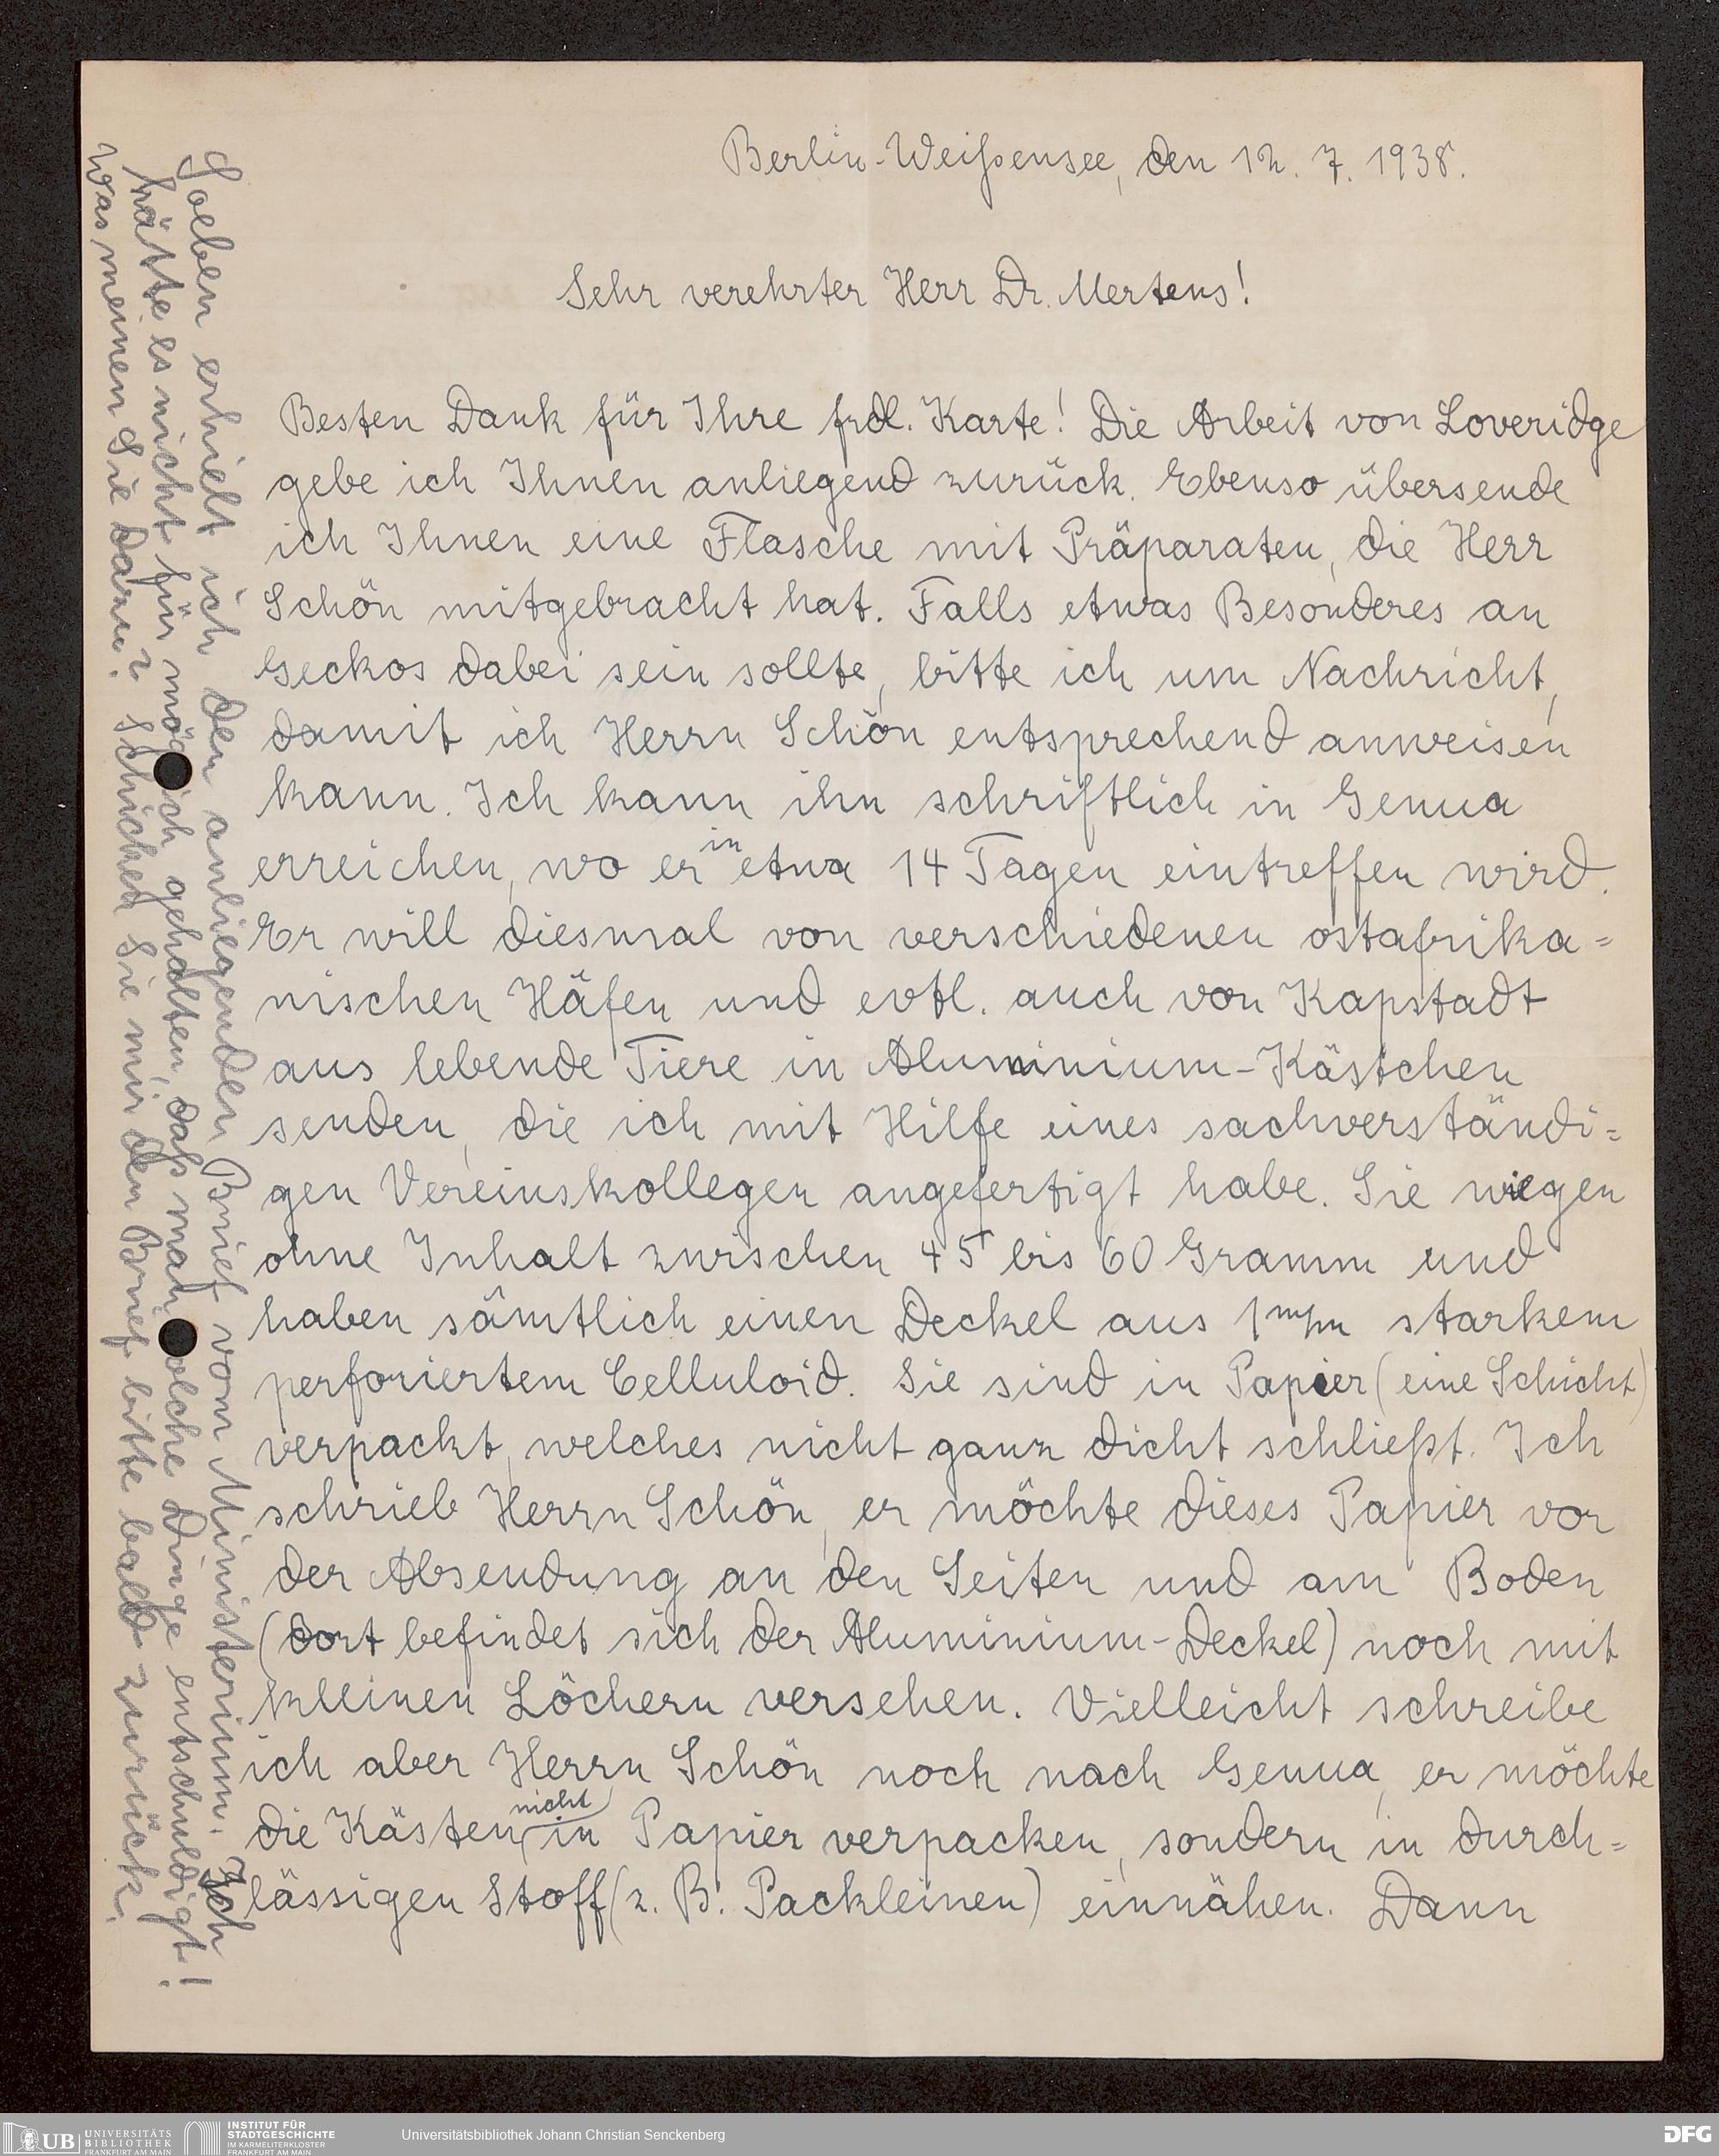 Berlin-Weißensee, den 12. 7. 1938.
Sehr verehrter Herr Dr. Mertens!
Besten Dank für Ihre frdl. Karte! Die Arbeit von Loveridge
gebe ich Ihnen anliegend zurück. Ebenso übersende
ich Ihnen eine Flasche mit Präparaten, die Herr
Schön mitgebracht hat. Falls etwas Besonderes an
Geckos dabei sein sollte, bitte ich um Nachricht,
damit ich Herrn Schön entsprechend anweisen
kann. Ich kann ihn schriftlich in Genua
erreichen, wo er in etwa 14 Tagen eintreffen wird.
Er will diesmal von verschiedenen ostafrika=
nischen Häfen und evtl. auch von Kapstadt
aus lebende Tiere in Aluminium-Kästchen
senden, die ich mit Hilfe eines sachverständi=
gen Vereinskollegen angefertigt habe. Sie wiegen
ohne Inhalt zwischen 45 bis 60 Gramm und
haben sämtlich einen Deckel aus 1 m/m starkem
perforiertem Celluloid. Sie sind in Papier (eine Schicht)
verpackt, welches nicht ganz dicht schließt. Ich
schrieb Herrn Schön, er möchte dieses Papier vor
der Absendung an den Seiten und am Boden
(dort befindet sich der Aluminium-Deckel) noch mit
kleinen Löchern versehen. Vielleicht schreibe
ich aber Herrn Schön noch nach Genua, er möchte
die Kästen nicht in Papier verpacken, sondern in durch=
lässigen Stoff (z. B. Packleinen) einnähen. Dann
Soeben erhielt ich den anliegenden Brief vom Ministerium. Ich
hätte es nicht für möglich gehalten, daß man solche Dinge entschuldigt!
Was meinen Sie dazu? Schicken Sie mir den Brief bitte bald zurück.
UB UNIVERSITÄTS
BIBLIOTHEK
FRANKFURT AM MAIN
INSTITUT FÜR
STADTGESCHICHTE
IM KARMELITERKLOSTER
FRANKFURT AM MAIN
Universitätsbibliothek Johann Christian Senckenberg
DFG